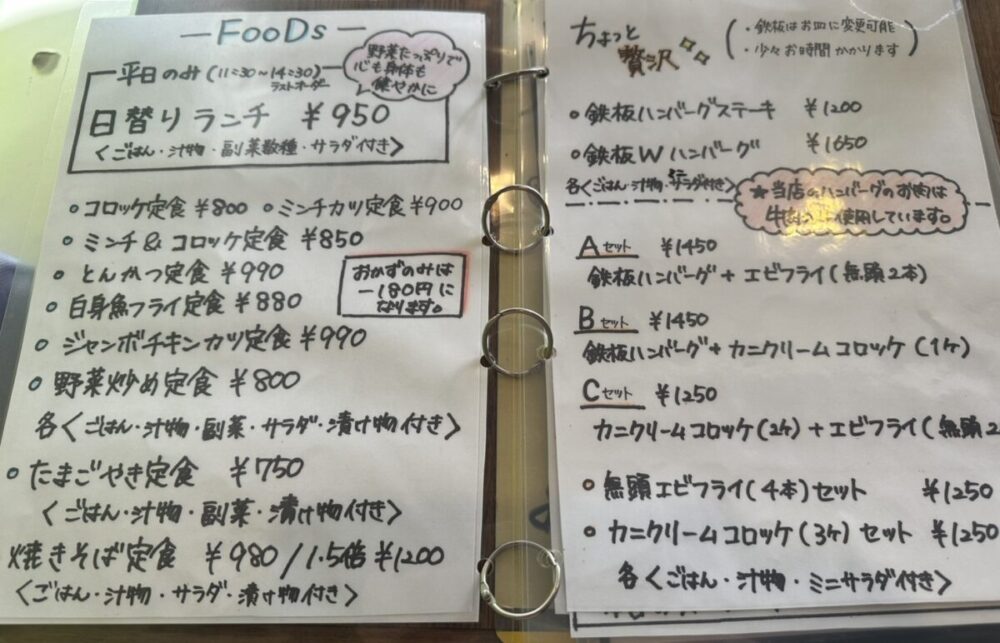 FooDs
平日のみ(11:30~14:30)
ラストオーダー
野菜たっぷりで
心も身体も
健やかに
日替りランチ ¥950
<ごはん・汁物・副菜数種・サラダ付き>
・コロッケ定食 ¥800 ・ミンチカツ定食 ¥900
・ミンチ&コロッケ定食 ¥850
・とんかつ定食 ¥990
・白身魚フライ定食 ¥880
おかずのみは
-180円に
なります。
・ジャンボチキンカツ定食 ¥990
・野菜炒め定食 ¥800
各<ごはん・汁物・副菜・サラダ・漬け物付き>
・たまごやき定食 ¥750
<ごはん・汁物・副菜・漬け物付き>
焼きそば定食 ¥980/1.5倍 ¥1200
<ごはん・汁物・サラダ・漬け物付き>
ちょっと
贅沢
・鉄板はお皿に変更可能
・少々お時間かかります
・鉄板ハンバーグステーキ ¥1200
・鉄板Wハンバーグ ¥1650
各<ごはん・汁物・サラダ付き>
★当店のハンバーグのお肉は
使用しています。
Aセット ¥1450
鉄板ハンバーグ+エビフライ(無頭2本)
Bセット ¥1450
鉄板ハンバーグ+カニクリームコロッケ(1ヶ)
Cセット ¥1250
カニクリームコロッケ(2ヶ)+エビフライ(無頭2
・無頭エビフライ(4本)セット ¥1250
・カニクリームコロッケ(3ヶ)セット ¥1250
各<ごはん・汁物・ミニサラダ付き>